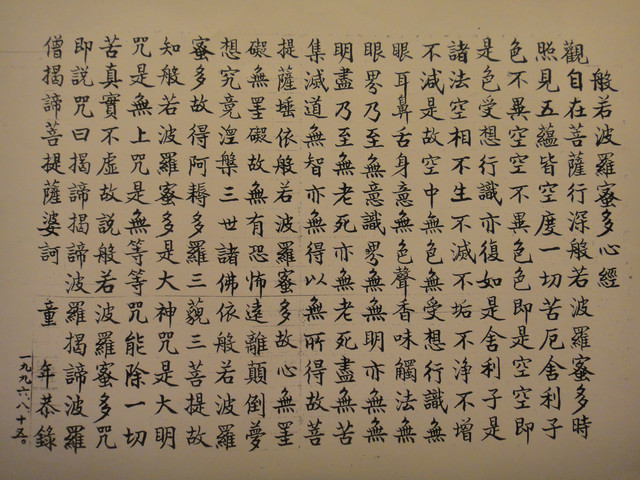 般若波羅蜜多心經
觀自在菩薩行深般若波羅蜜多時
照見五蘊皆空度一切苦厄舍利子
色不異空空不異色色即是空空即
是色受想行識亦復如是舍利子是
諸法空相不生不滅不垢不淨不增
不減是故空中無色無受想行識無
眼耳鼻舌身意無色聲香味觸法無
眼界乃至無意識界無無明亦無無
明盡乃至無老死亦無老死盡無苦
集滅道無智亦無得以無所得故菩
提薩埵依般若波羅蜜多故心無罣
礙無罣礙故無有恐怖遠離顛倒夢
想究竟涅槃三世諸佛依般若波羅
蜜多故得阿耨多羅三藐三菩提故
知般若波羅蜜多是大神咒是大明
咒是無上咒是無等等咒能除一切
苦真實不虛故說般若波羅蜜多咒
即說咒曰揭諦揭諦波羅揭諦波羅
僧揭諦菩提薩婆訶 童 年恭錄
一九九六、八、十五。